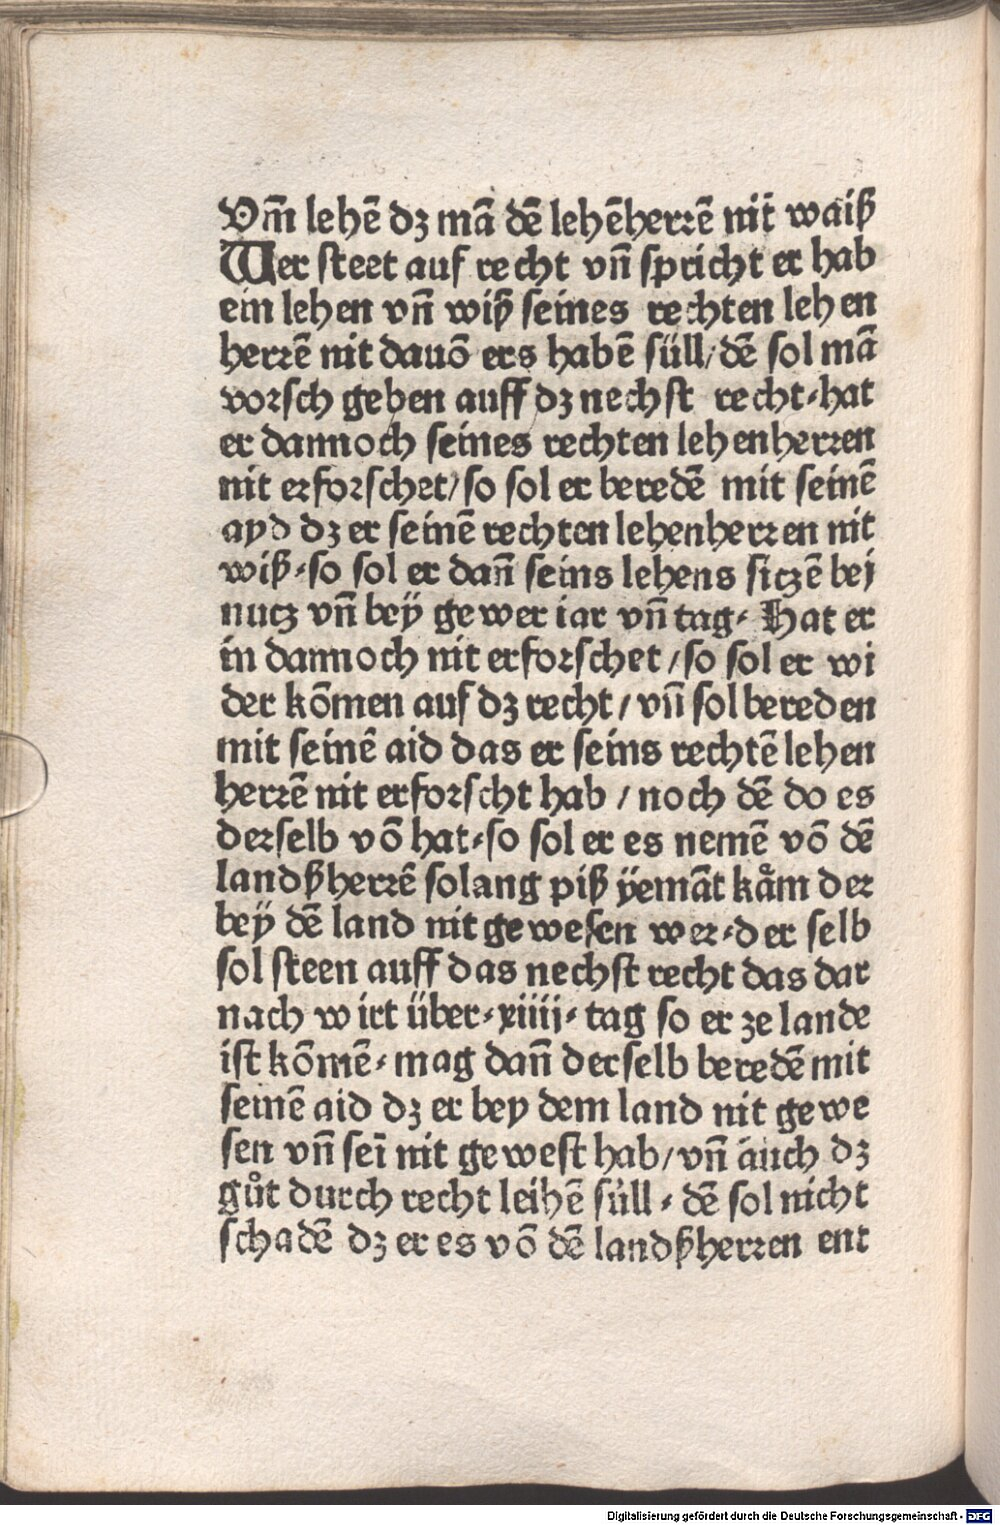 Vm̄ lehē dz mā dē lehēherrē nit waiß
Wer steet auf recht vn̄ spricht er hab
ein lehen vn̄ wiß seines rechten lehen
herrē nit dauō ers habē süll/dē sol mā
vorsch geben auff dz nechst recht⸗hat
er dannoch seines rechten lehenherren
nit erforschet/so sol er beredē mit seinē
ayd dz er seinē rechten lehenherren nit
wiß⸗so sol er dan̄ seins lehens sitzē bei
nutz vn̄ bey̎ gewer iar vn̄ tag⸗ Hat er
in dannoch nit erforschet/so sol er wi
der kōmen auf dz recht/vn̄ sol bereden
mit seinē aid das er seins rechtē lehen
herrē nit erforscht hab/noch dē do es
derselb vō hat⸗so sol er es nemē vō dē
landßherrē solang piß ÿemāt kåm der
bey̎ dē land nit gewesen wer⸗der selb
sol steen auff das nechst recht das dar
nach wirt über⸗xiiij⸗tag so er ze lande
ist kōmē⸗mag dan̄ derselb beredē mit
seinē aid dz er bey dem land nit gewe
sen vn̄ seī nit gewest hab/vn̄ auch dz
gůt durch recht leihē süll⸗dē sol nicht
schadē dz er es vō dē landßherren ent
Digitalisierung gefördert durch die Deutsche Forschungsgemeinschaft - DFG